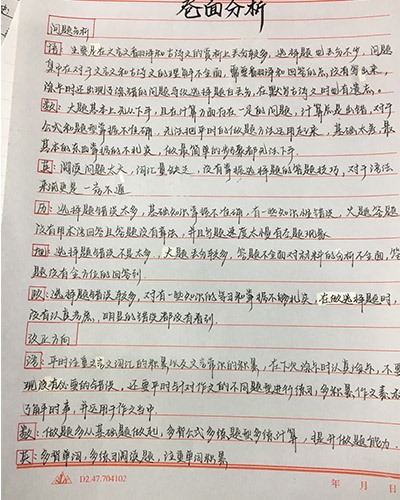 卷面分析
问题分析
语：主要是在文言文翻译和古诗文的赏析上丢分较多，选择题回丢分不少，问题
集中在对于文言文和古诗文的理解不全面，需要翻译和回答的点，没有答出来，
读年时还出现了流错的问题导致选择题白丢分，在默写古诗文时回有遗忘。
数：大题基本上无从下手，且在计算方面存在一定的问题，计算总是出错，对于
公式和题型掌握不准确，无法把平时的做题方法运用起来，基础太差，最
基本的东西掌握的不扎实，做最简单的步骤都无法下手。
英：阅读问题太大，词汇量缺乏，没有掌握选择题的答题技巧，对于语法
来说更是一窍不通
历：选择题错误太多，基础知识掌握不准确，有一些知识性错误，大题答题
没有用术语回答且答题没有章法，并且写题速度太慢有空题现象
地：选择题错误不是太多，大题丢分较多，答题不全面对材料的分析不全面，答
题没有全方位的回答到
政：选择题错误较多，对有一些知识的学习和掌握不够扎实，在做选择题时，
没有认真考虑，明显的错误都没有看到。
改正方向
语：平时注重文言文词汇的积累以及文言常识的积累，在下次读年时认真涂卡，不要
现没有必要的错误，还要平时针对作文的不同题型进行练习，多积累作文素材
了解时事，并运用于作文当中。
数：做题多从基础题做起，多背公式多练题型多练计算，提升做题能力。
英：多背单词，多练习阅读题，注重单词积累
D2.47.704102
年 月 日